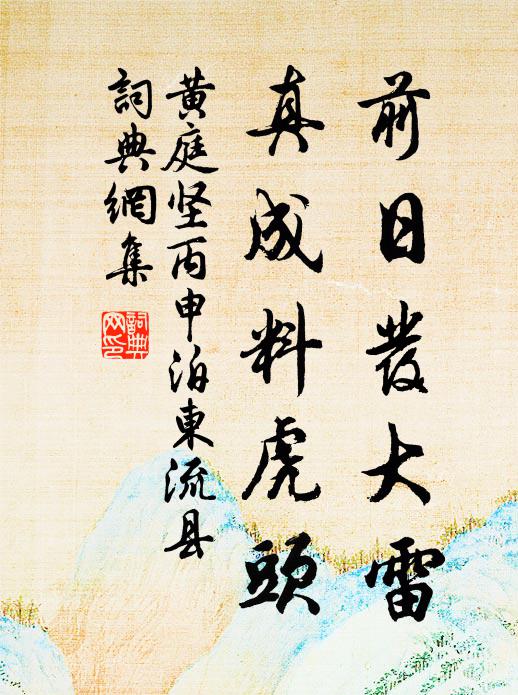 前日發大雷
真成料虎頭
黄庭坚丙申泊東流县
詞典網集
詞典
网印